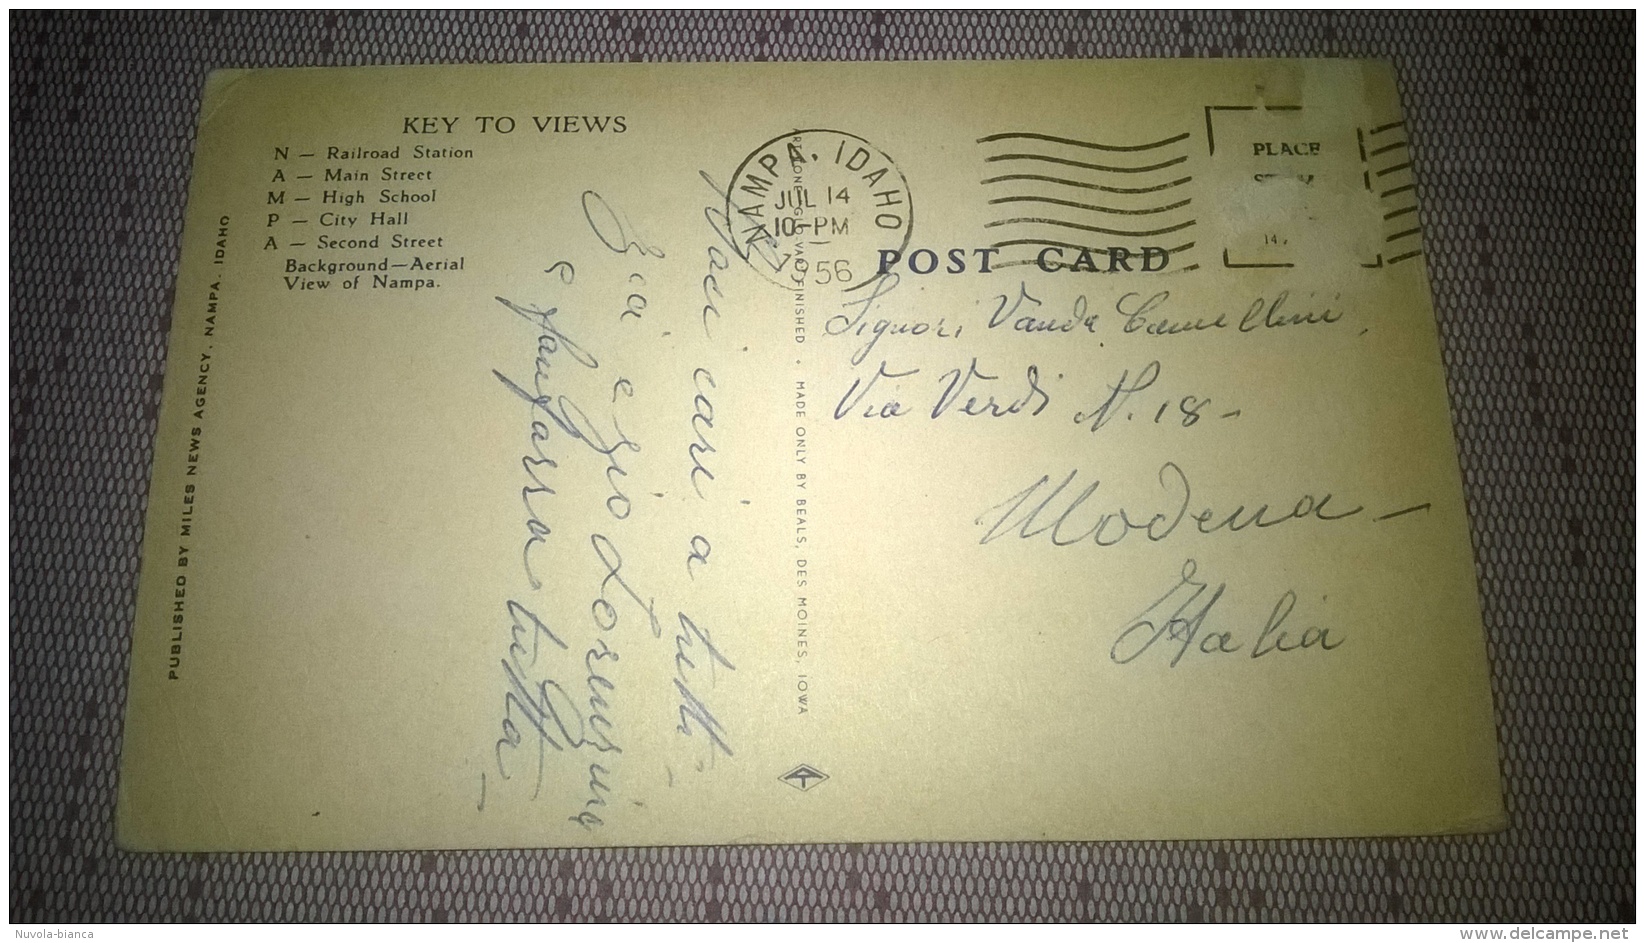 KEY TO VIEWS
N — Railroad Station
A — Main Street
M — High School
P — City Hall
A — Second Street
Background—Aerial
View of Nampa.
PUBLISHED BY MILES NEWS AGENCY, NAMPA, IDAHO
Baci cari a tutti
Zia e zio Lorenzini
e fanfarra tutta
FINISHED • MADE ONLY BY BEALS, DES MOINES, IOWA
NAMPA, IDAHO
JUL 14
10-PM
1956
PLACE
14.
POST CARD
Signori Vanda Camellini,
Via Verdi N. 18 –
Modena –
Italia
Nuvola-bianca
delcampe.net